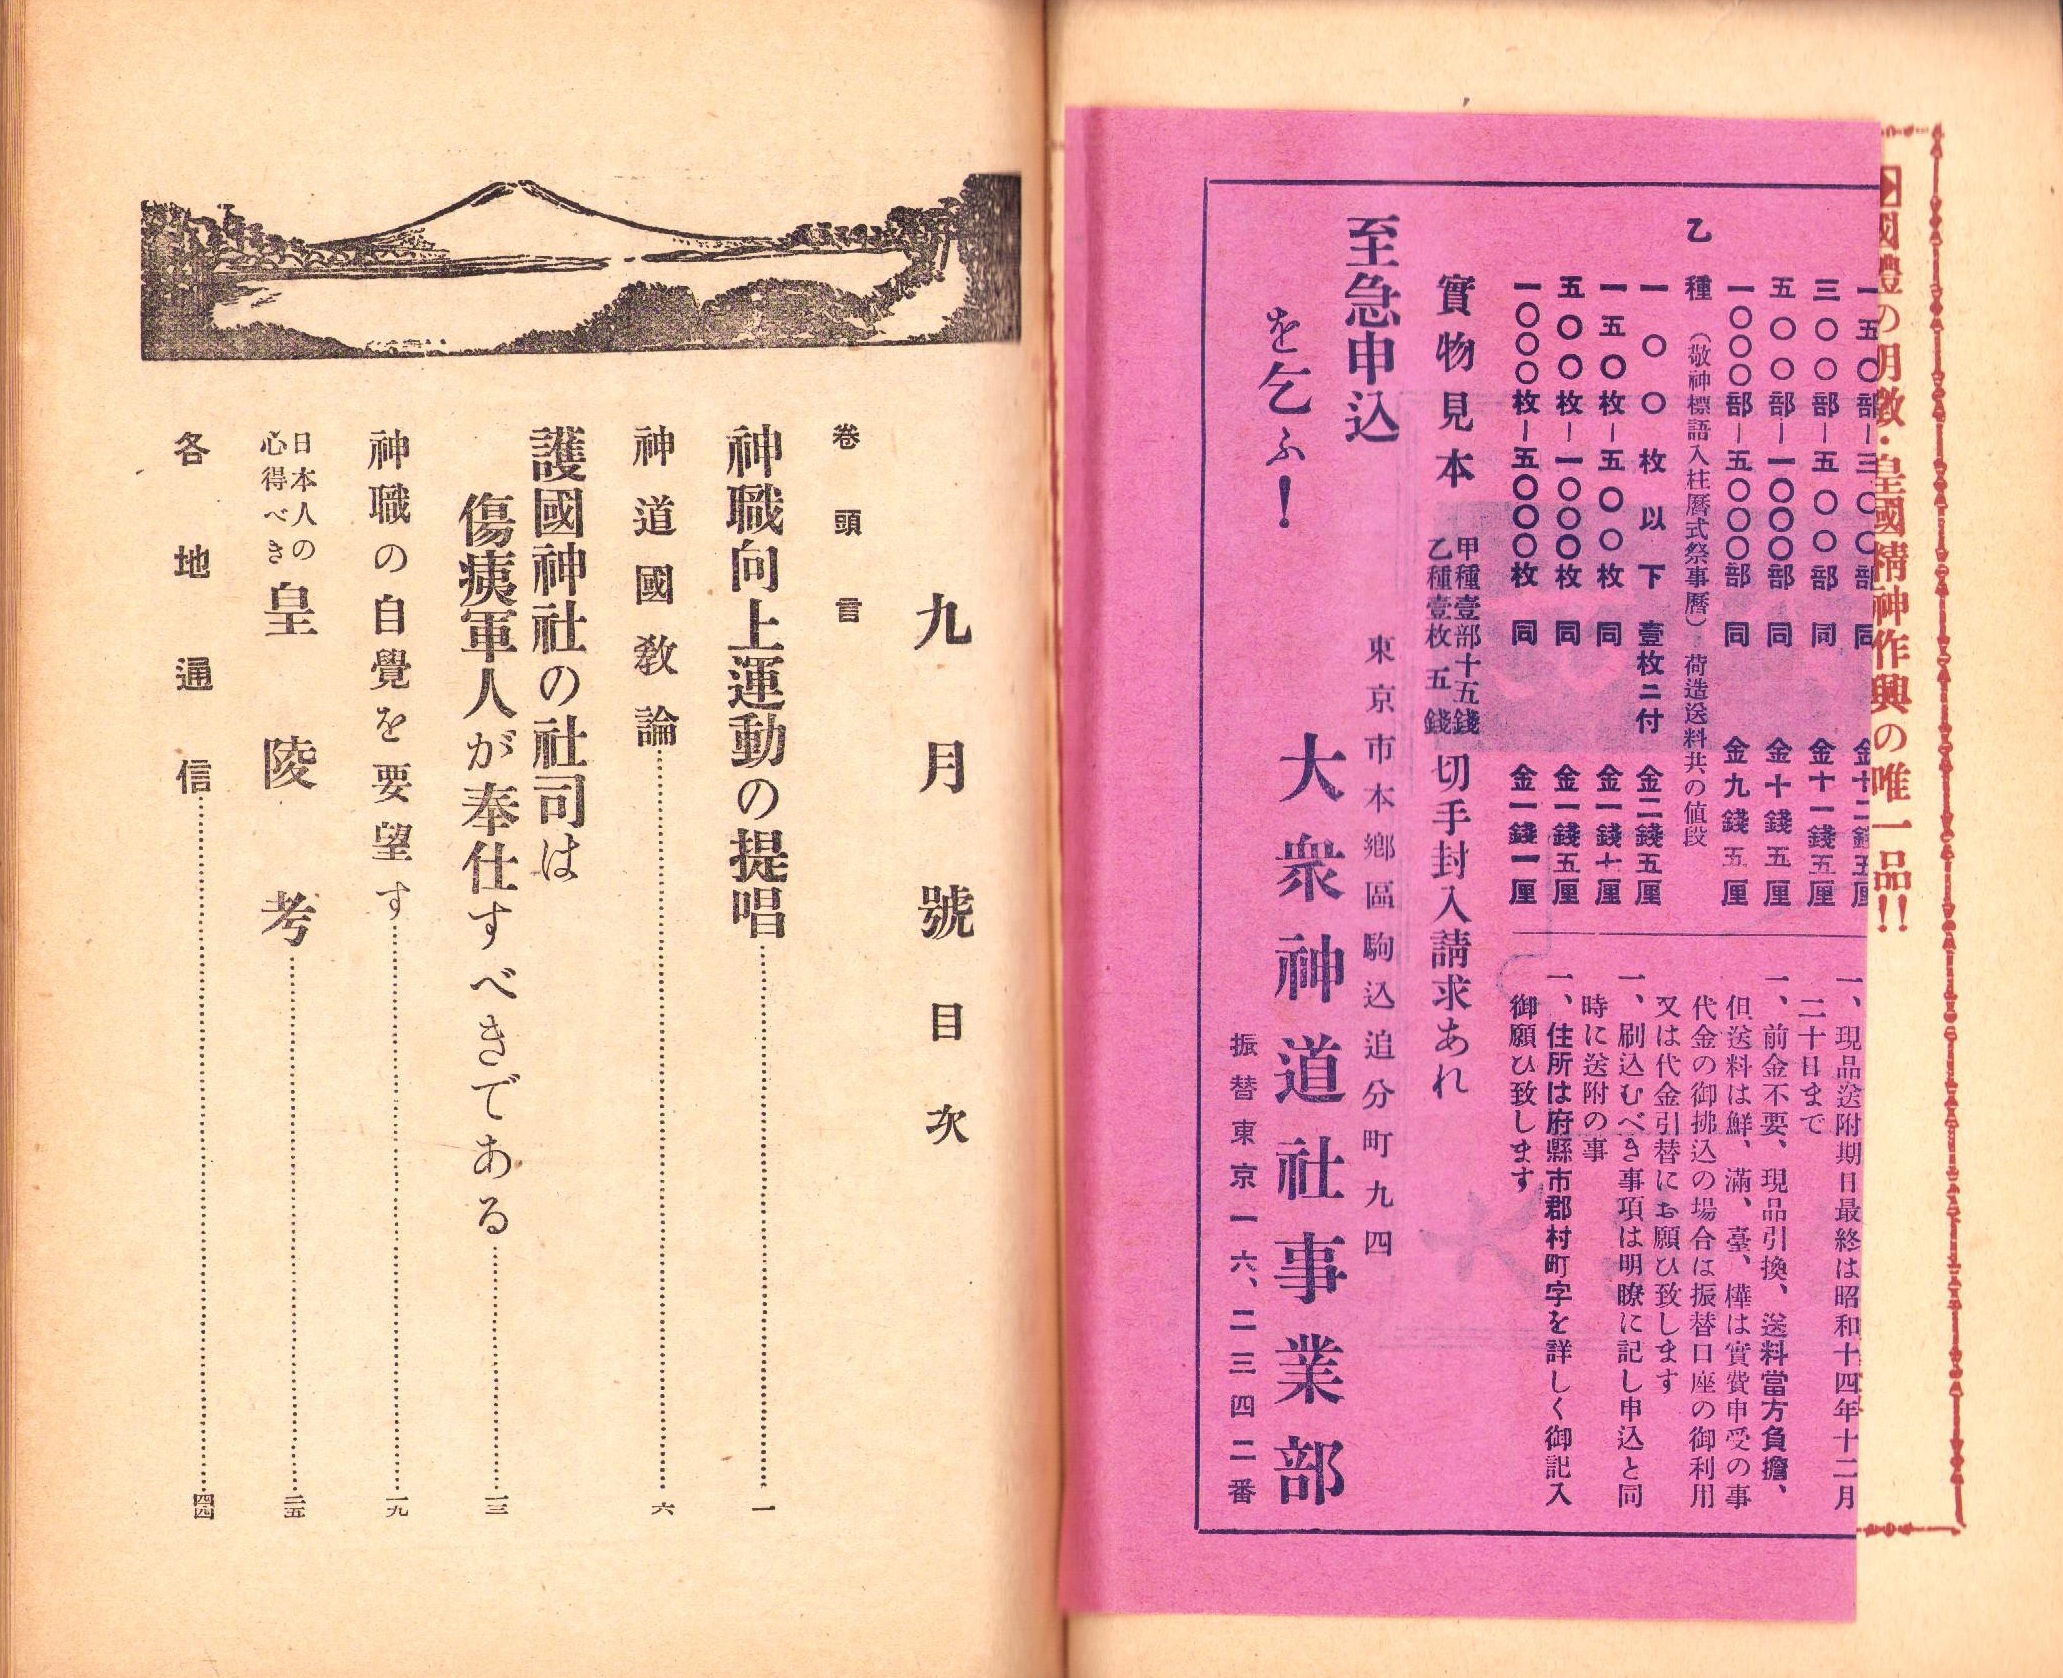 國體の明徵・皇國精神作興の唯一品!!
一五〇部―三〇〇部 同 金十二錢五厘
三〇〇部―五〇〇部 同 金十一錢五厘
五〇〇部―一〇〇〇部 同 金十錢五厘
一〇〇〇部―五〇〇〇部 同 金九錢五厘
乙種 (敬神標語入柱曆式祭事曆) 荷造送料共の値段
一〇〇枚以下 壹枚ニ付 金二錢五厘
一五〇枚―五〇〇枚 同 金一錢十厘
五〇〇枚―一〇〇〇枚 同 金一錢五厘
一〇〇〇枚―五〇〇〇枚 同 金一錢一厘
一、現品送附期日最終は昭和十四年十二月
二十日まで
一、前金不要、現品引換、送料當方負擔、
但送料は鮮、滿、臺、樺は實費申受の事
代金の御拂込の場合は振替口座の御利用
又は代金引替にお願ひ致します
一、刷込むべき事項は明瞭に記し申込と同
時に送附の事
一、住所は府縣市郡村町字を詳しく御記入
御願ひ致します
實物見本 甲種壹部十五錢
乙種壹枚五錢 切手封入請求あれ
至急申込
を乞ふ!
東京市本鄕區駒込追分町九四
大衆神道社事業部
振替東京一六、二三四二番
九月號目次
卷頭言
神職向上運動の提唱…一
神道國敎論…六
護國神社の社司は
傷痍軍人が奉仕すべきである…一三
神職の自覺を要望す…一九
日本人の
心得べき 皇陵考…二五
各地通信…四四